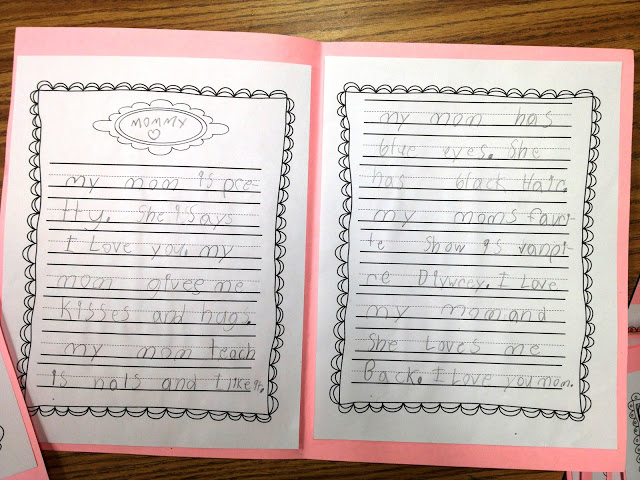 MOMMY
my mom is pre-
tty. She is Says
I Love you. my
mom gives me
kisses and hugs.
my mom teach
is nals and I like it.
my mom has
blue eyes. She
has black Hair.
my moms favri-
te show is vanpi-
re Diywrey. I Love
my mom and
she Loves me
Back. I Love you mom.